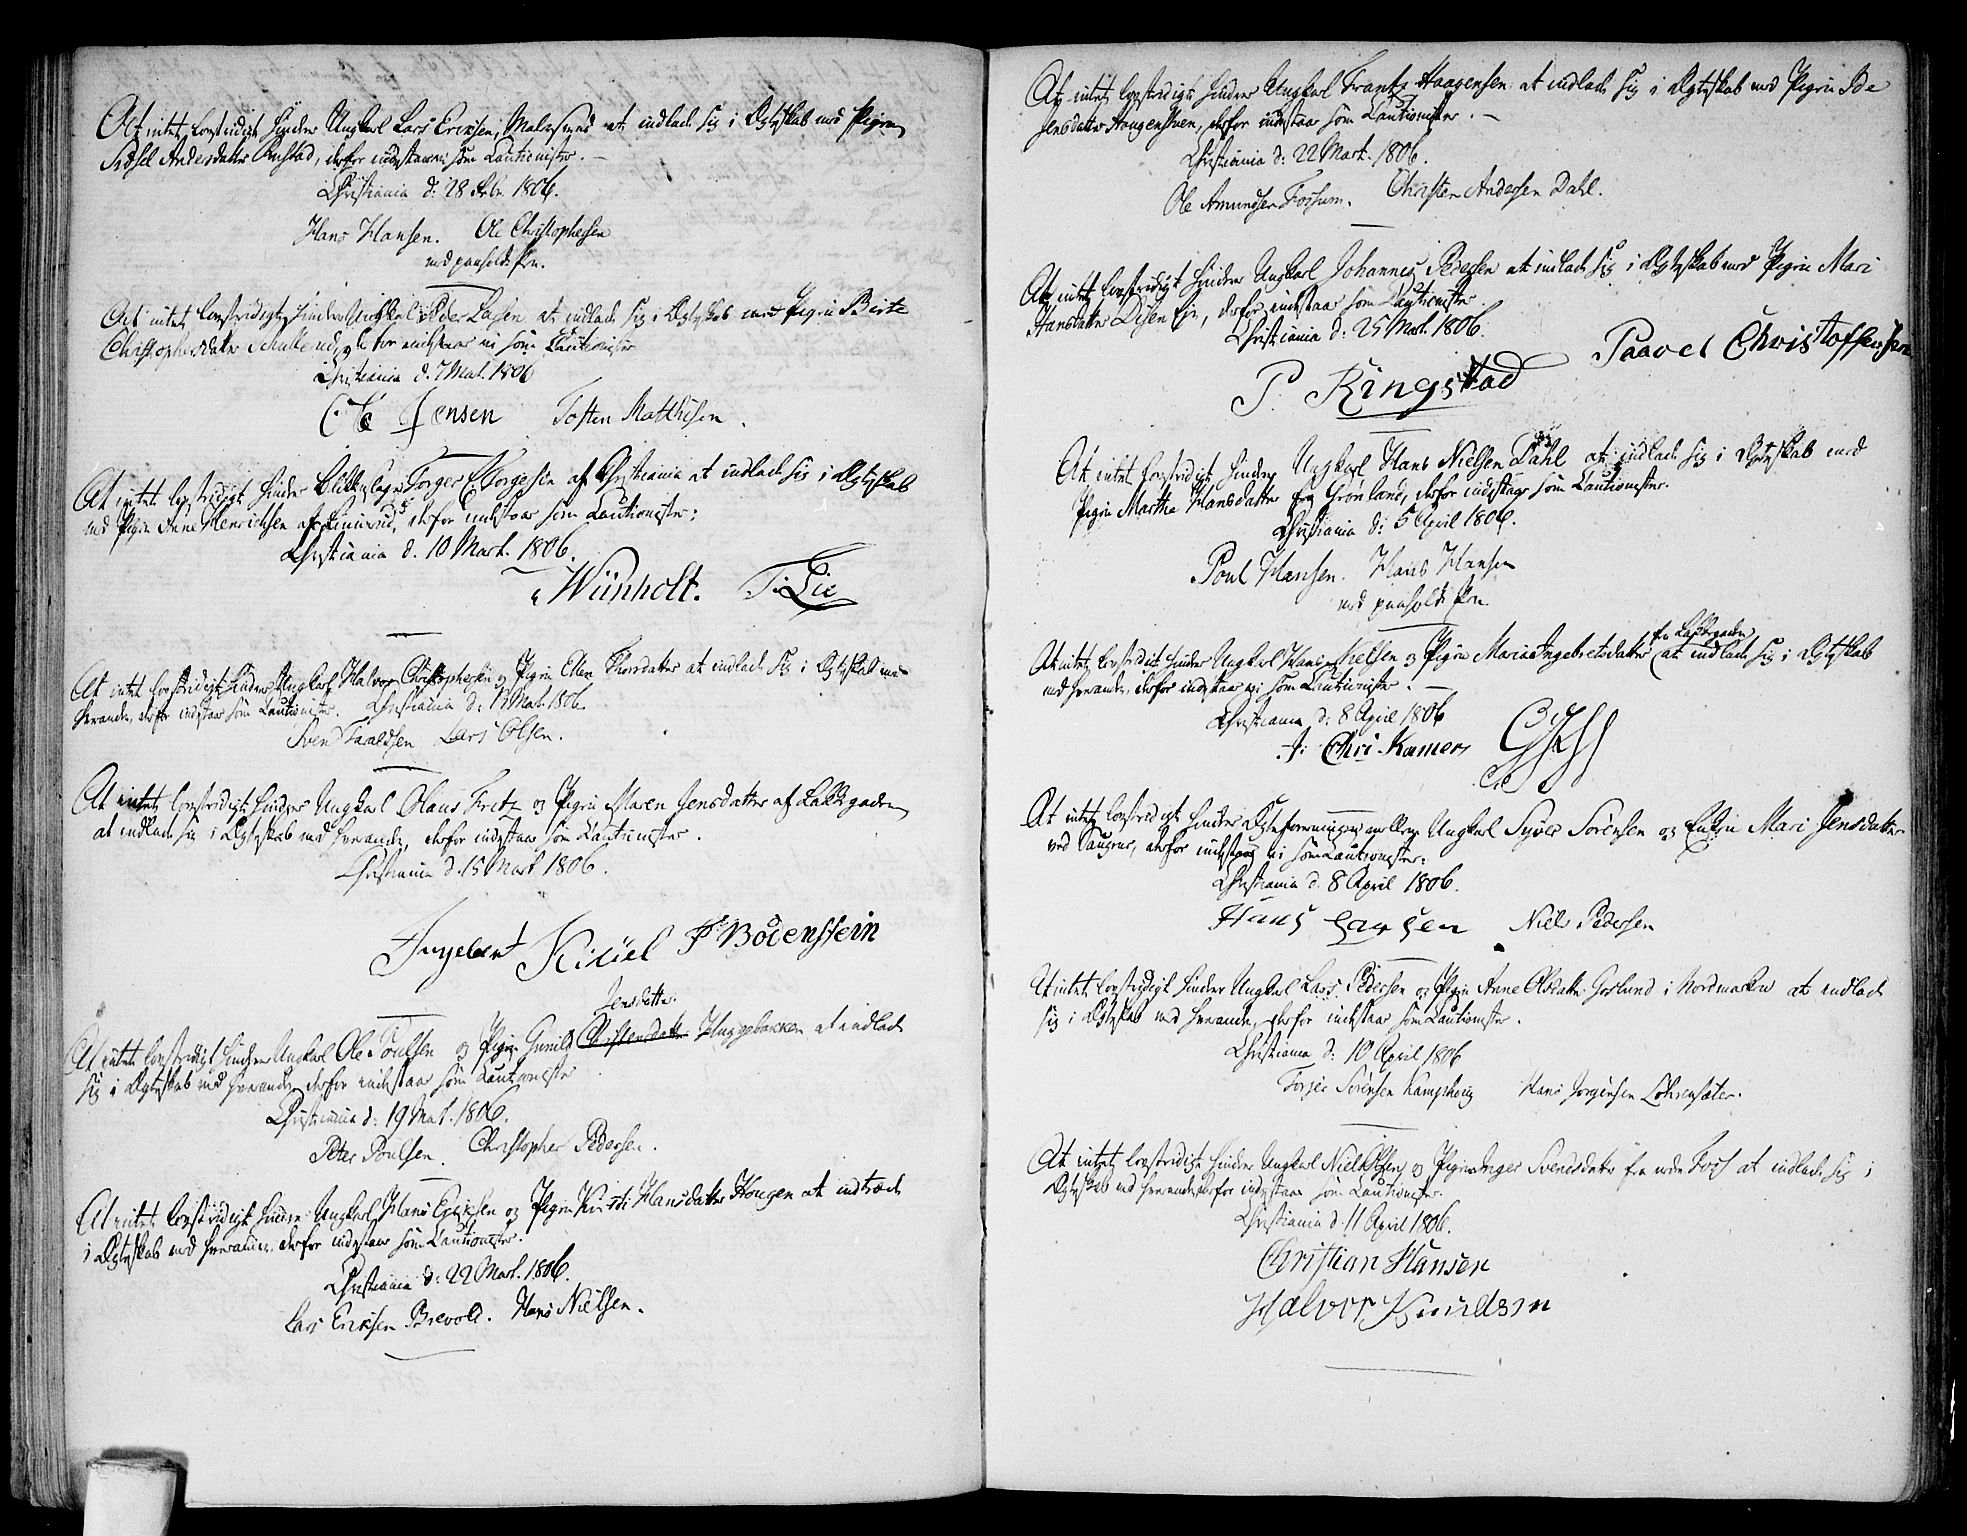 At intet lovstridigt hindrer Ungkarl Lars Eriksen, at indlade sig i Ægteskab med Pigen
Sidsel Andersdatter Rustad, derfor indestaaer som Cautionister. –
Christiania d: 28 Febr. 1806.
Hans Hansen. Ole Christophersen
med paaholden Pen.
At intet lovstridigt hindrer Ungkarl Peder Larsen at indlade sig i Ægteskab med Pigen Berte
Christophersdatter derfor indestaar vi som Cautionister
Christiania d. 7 Mart. 1806
Ole Jensen Tosten Matthisen.
At intet lovstridigt hindrer Torger Torgersen af Christiania at indlade sig i Ægteskab
med Pigen Anne Henrichsen af derfor indestaar som Cautionister:
Christiania d. 10 Mart. 1806.
Wünholt. T: Lie
At intet lovstridigt hindrer Ungkarl Halvor Christophersen og Pigen Ellen Thordatter at indlade sig i Ægteskab med
hverandre, derfor indestaar som Cautionister. Christiania d: Mart. 1806.
Sven Lars Olsen.
At intet lovstridigt hindrer Ungkarl Olaus Fretz og Pigen Maren Jensdatter af Lakkegaden
at indlade sig i Ægteskab med hverandre, derfor indestaar som Cautionister.
Christiania d. 15 Mart 1806.
Ingebret F. Bodenstein
Jensdatter
At intet lovstridigt hindrer Ungkarl Ole Poulsen og Pigen Gunild Christensdatter Huggebakken at indlade
sig i Ægteskab med hverandre, derfor indestaar som Cautionister
Christiania d. 19 Mart. 1806.
Peter Poulsen. Christopher Pedersen.
At intet lovstridigt hindrer Ungkarl Hans Eriksen og Pigen Kirsti Hansdatter Hougen at indtræde
i Ægteskab med hverandre, derfor indestaar som Cautionister.
Christiania d: 22 Mart. 1806.
Lars Eriksen Brevold. Hans Nielsen.
At intet lovstridigt hindrer Ungkarl Frantz Haagensen at indlade sig i Ægteskab med Pigen Ide
Jensdatter derfor indestaar som Cautionister. –
Christiania d: 22 Mart. 1806.
Ole Amundsen Fossum. Christen Andersen Dahl.
At intet lovstridigt hindrer Ungkarl Johannes Pedersen at indlade sig i Ægteskab med Pigen Mari
Hansdatter Disen Eje, derfor indestaar som Cautionister
Christiania d: 25 Mart. 1806.
P. Ringstad Paavel Christoffersen
At intet lovstridigt hindrer Ungkarl Hans Nielsen Dahl at indlade sig i Ægteskab med
Pigen Martha Hansdatter fra Grønland, derfor indestaar som Cautionister.
Christiania d: 5 April 1806.
Poul Hansen. Hans Hansen
med paaholden Pen.
fra Lakkegaden
At intet lovstridigt hindrer Ungkarl Hans Nielsen og Pigen Maria Ingebretsdatter at indlade sig i Ægteskab
med hverandre, derfor indestaar vi som Cautionister. –
Christiania d: 8 April 1806
Chri. Kamers
At intet lovstridigt hindrer Ægteforeningen mellem Ungkarl Syver Sørensen og Enken Mari Jensdatter
ved Saugene, derfor indestaar vi som Cautionister:
Christiania d. 8 April 1806.
Hans Larsen Niels Pedersen
At intet lovstridigt hindrer Ungkarl Lars Pedersen og Pigen Anne Olsdatter i Nordmarken at indlade
sig i Ægteskab med hverandre, derfor indestaar som Cautionister.
Christiania d: 10 April 1806
Torger Sørensen Kamphoug Hans Jørgensen
At intet lovstridigt hindrer Ungkarl Niels Olsen og Pigen Inger Svendsdatter fra nedre Foss at indlade sig i
Ægteskab med hverandre, derfor indestaar som Cautionister.
Christiania d. 11 April 1806.
Christian Hansen
Halvor Knudsen